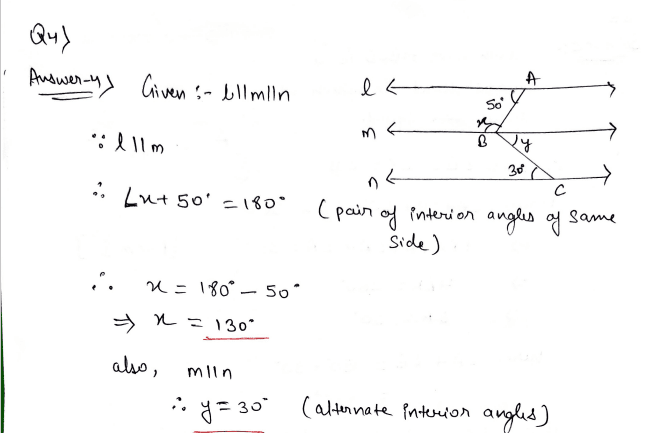 Q4)
Answer-4) Given :- l||m||n
∵ l||m
∴ ∠x + 50° = 180° (pair of interior angles of same side)
∴ x = 180° - 50°
⇒ x = 130°
also, m||n
∴ y = 30° (alternate interior angles)
l A
50°
m x
B y
30°
n C